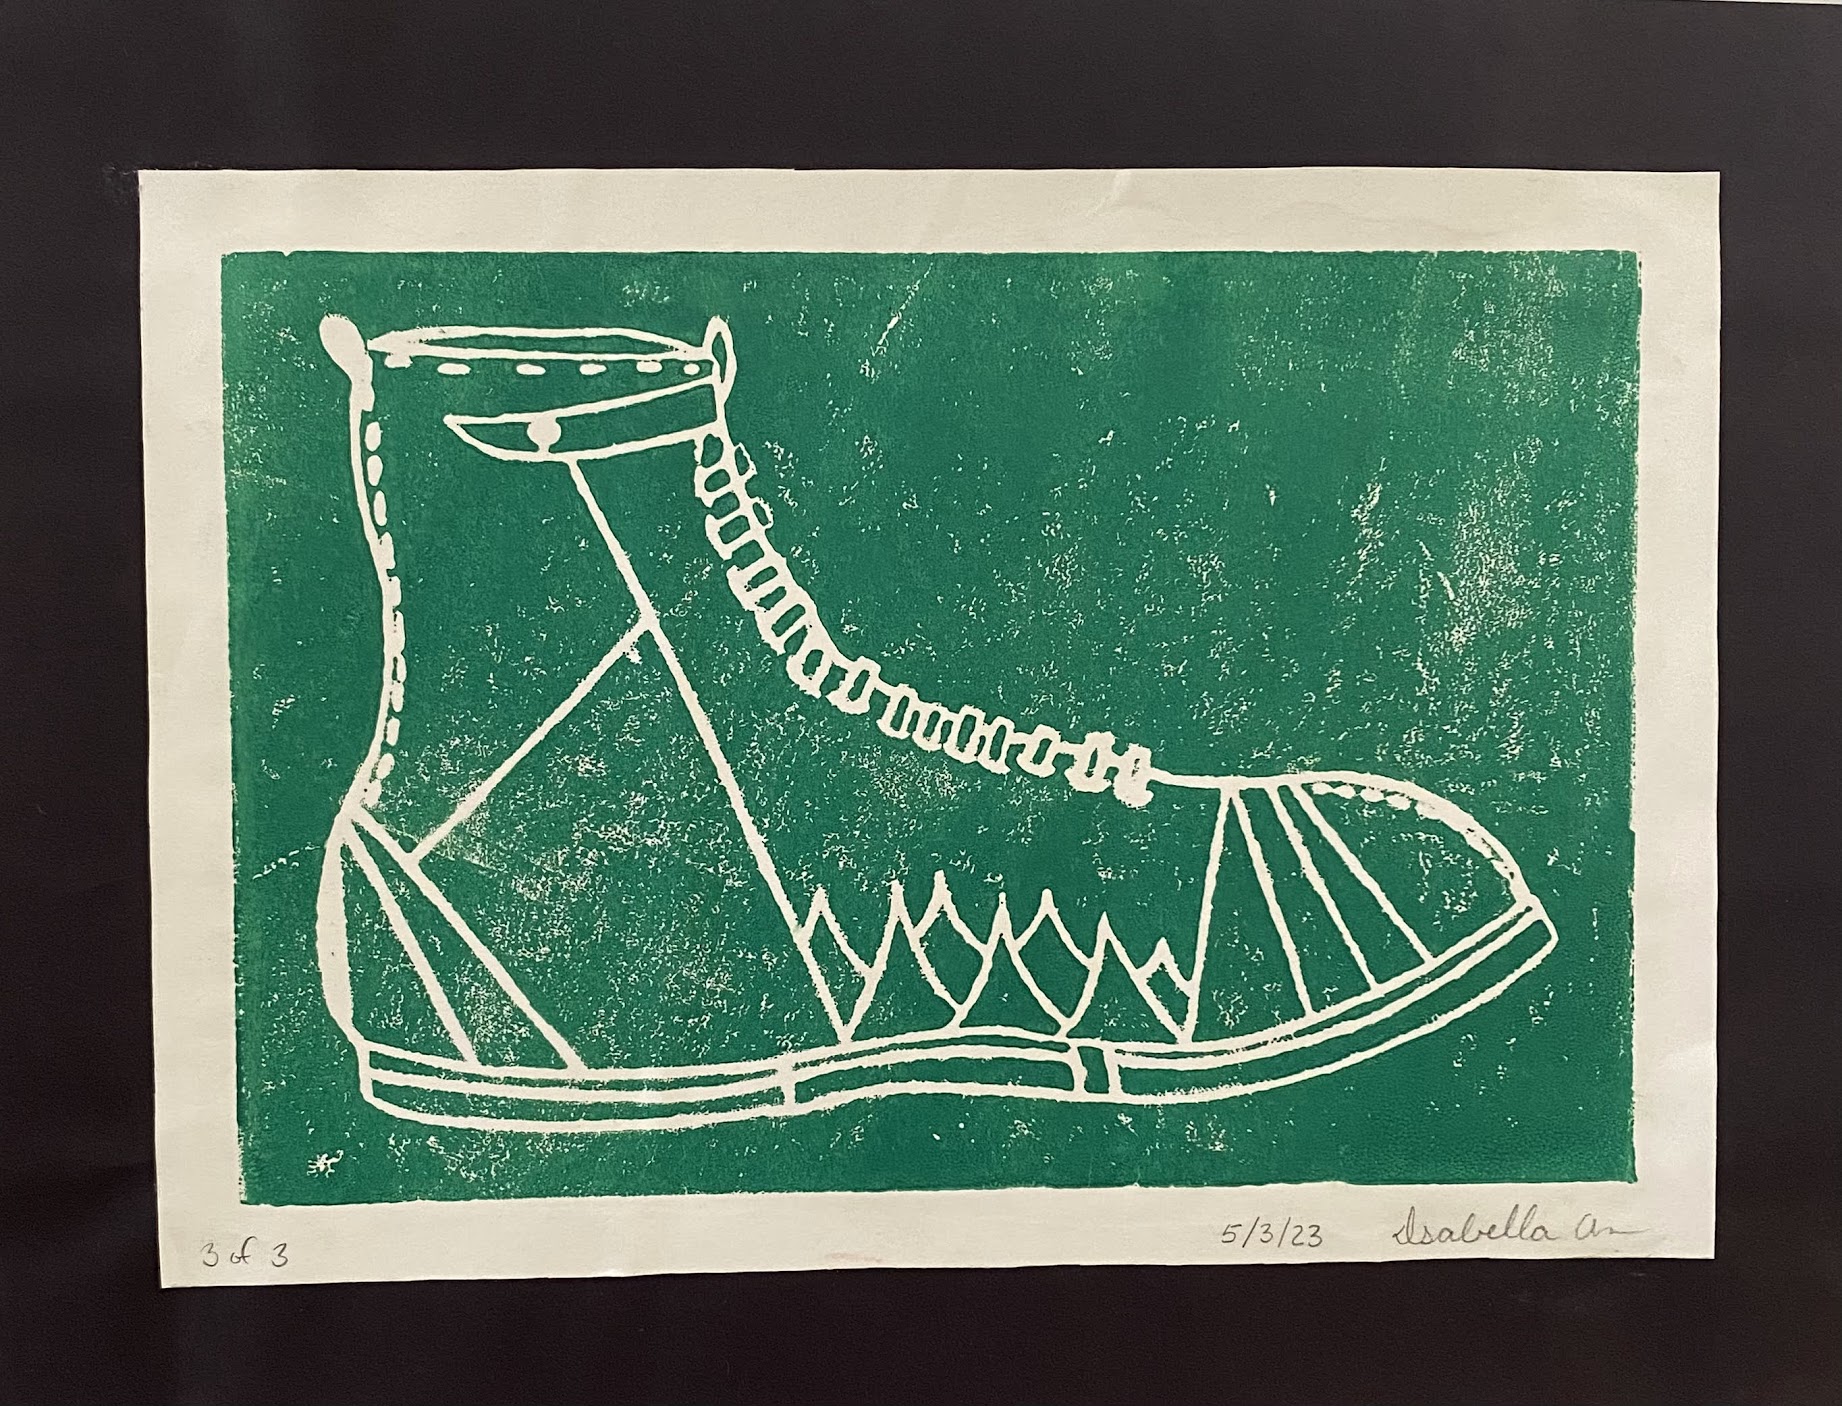 3 of 3
5/3/23 Isabella